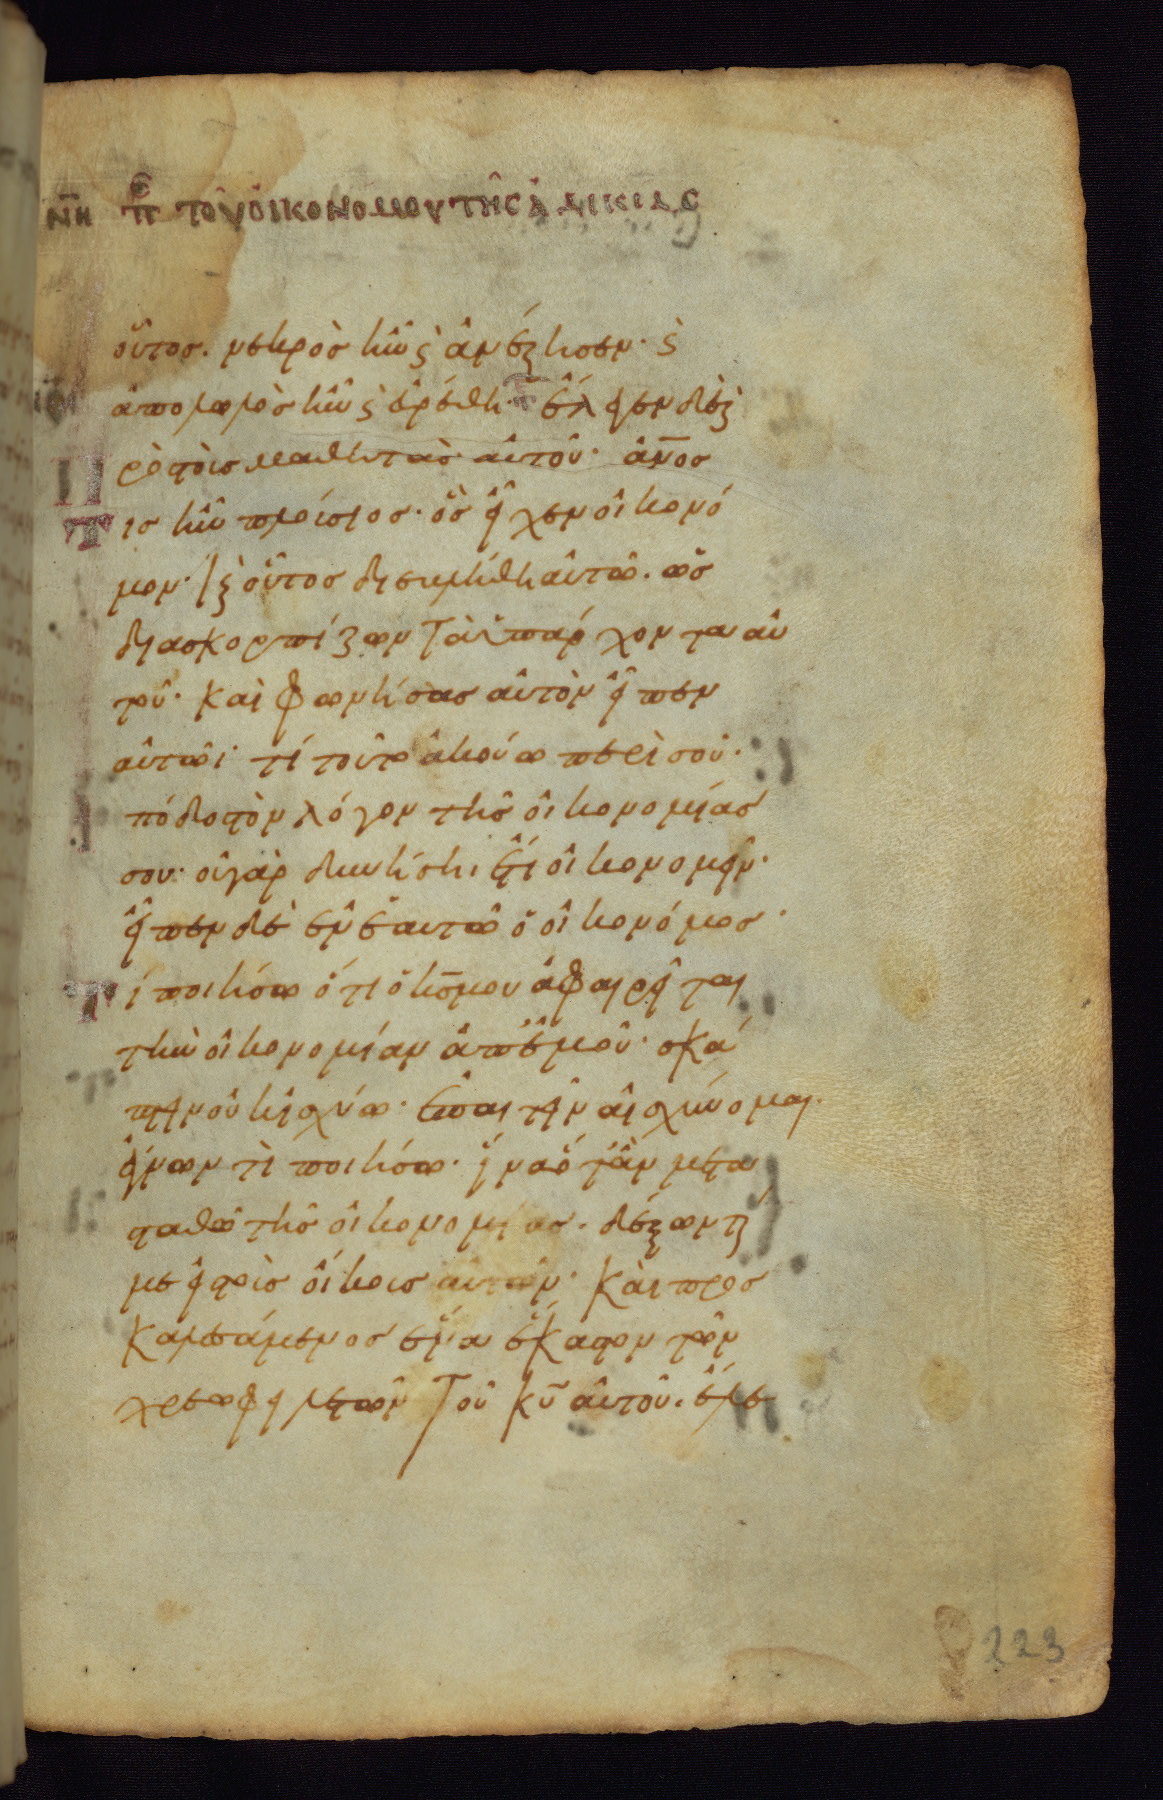 νη πε του οικονομου της αδικιας
οὗτος. νεκρὸς ἦν ϛ ἀνέζησεν· ϛ
ἀπολωλὸς ἦν ϛ εὑρέθη· ἔλεγεν δὲ ϗ
πρὸς τοὺς μαθητὰς αὐτοῦ· ἀν̅ος
τις ἦν πλούσιος· ὃς εἶχεν οἰκονό
μον· ϗ οὗτος διεβλήθη αὐτῶ. ὡς
διασκορπίζων τὰ ὑπάρχοντα αὐ
τοῦ· καὶ φωνήσας αὐτὸν εἶπεν
αὐτῶι· τί τοῦτο ἀκούω περὶ σοῦ·
πόδος τὸν λόγον τῆς οἰκονομίας
σου· οὐ γὰρ δυνήσηι ἔτι οἰκονομεῖν·
εἶπεν δὲ ἐν ἑαυτῶ ὁ οἰκονόμος·
Τί ποιήσω ὅτι ὁ κ̅ς μου ἀφαιρεῖται
τὴν οἰκονομίαν ἀπ ἐμοῦ· σκά
πτειν οὐκ ἰσχύω· ἐπαιτεῖν αἰσχύνομαι·
ἔγνων τί ποιήσω· ἵνα ὅταν μετα
σταθῶ τῆς οἰκονομίας. δέξωνται
με εἰς τοὺς οἴκους αὐτῶν· Καὶ προσ
καλεσάμενος ἕνα ἕκαστον τῶν
χρεωφειλετῶν τοῦ κ̅υ αὐτοῦ. ἔλε
223